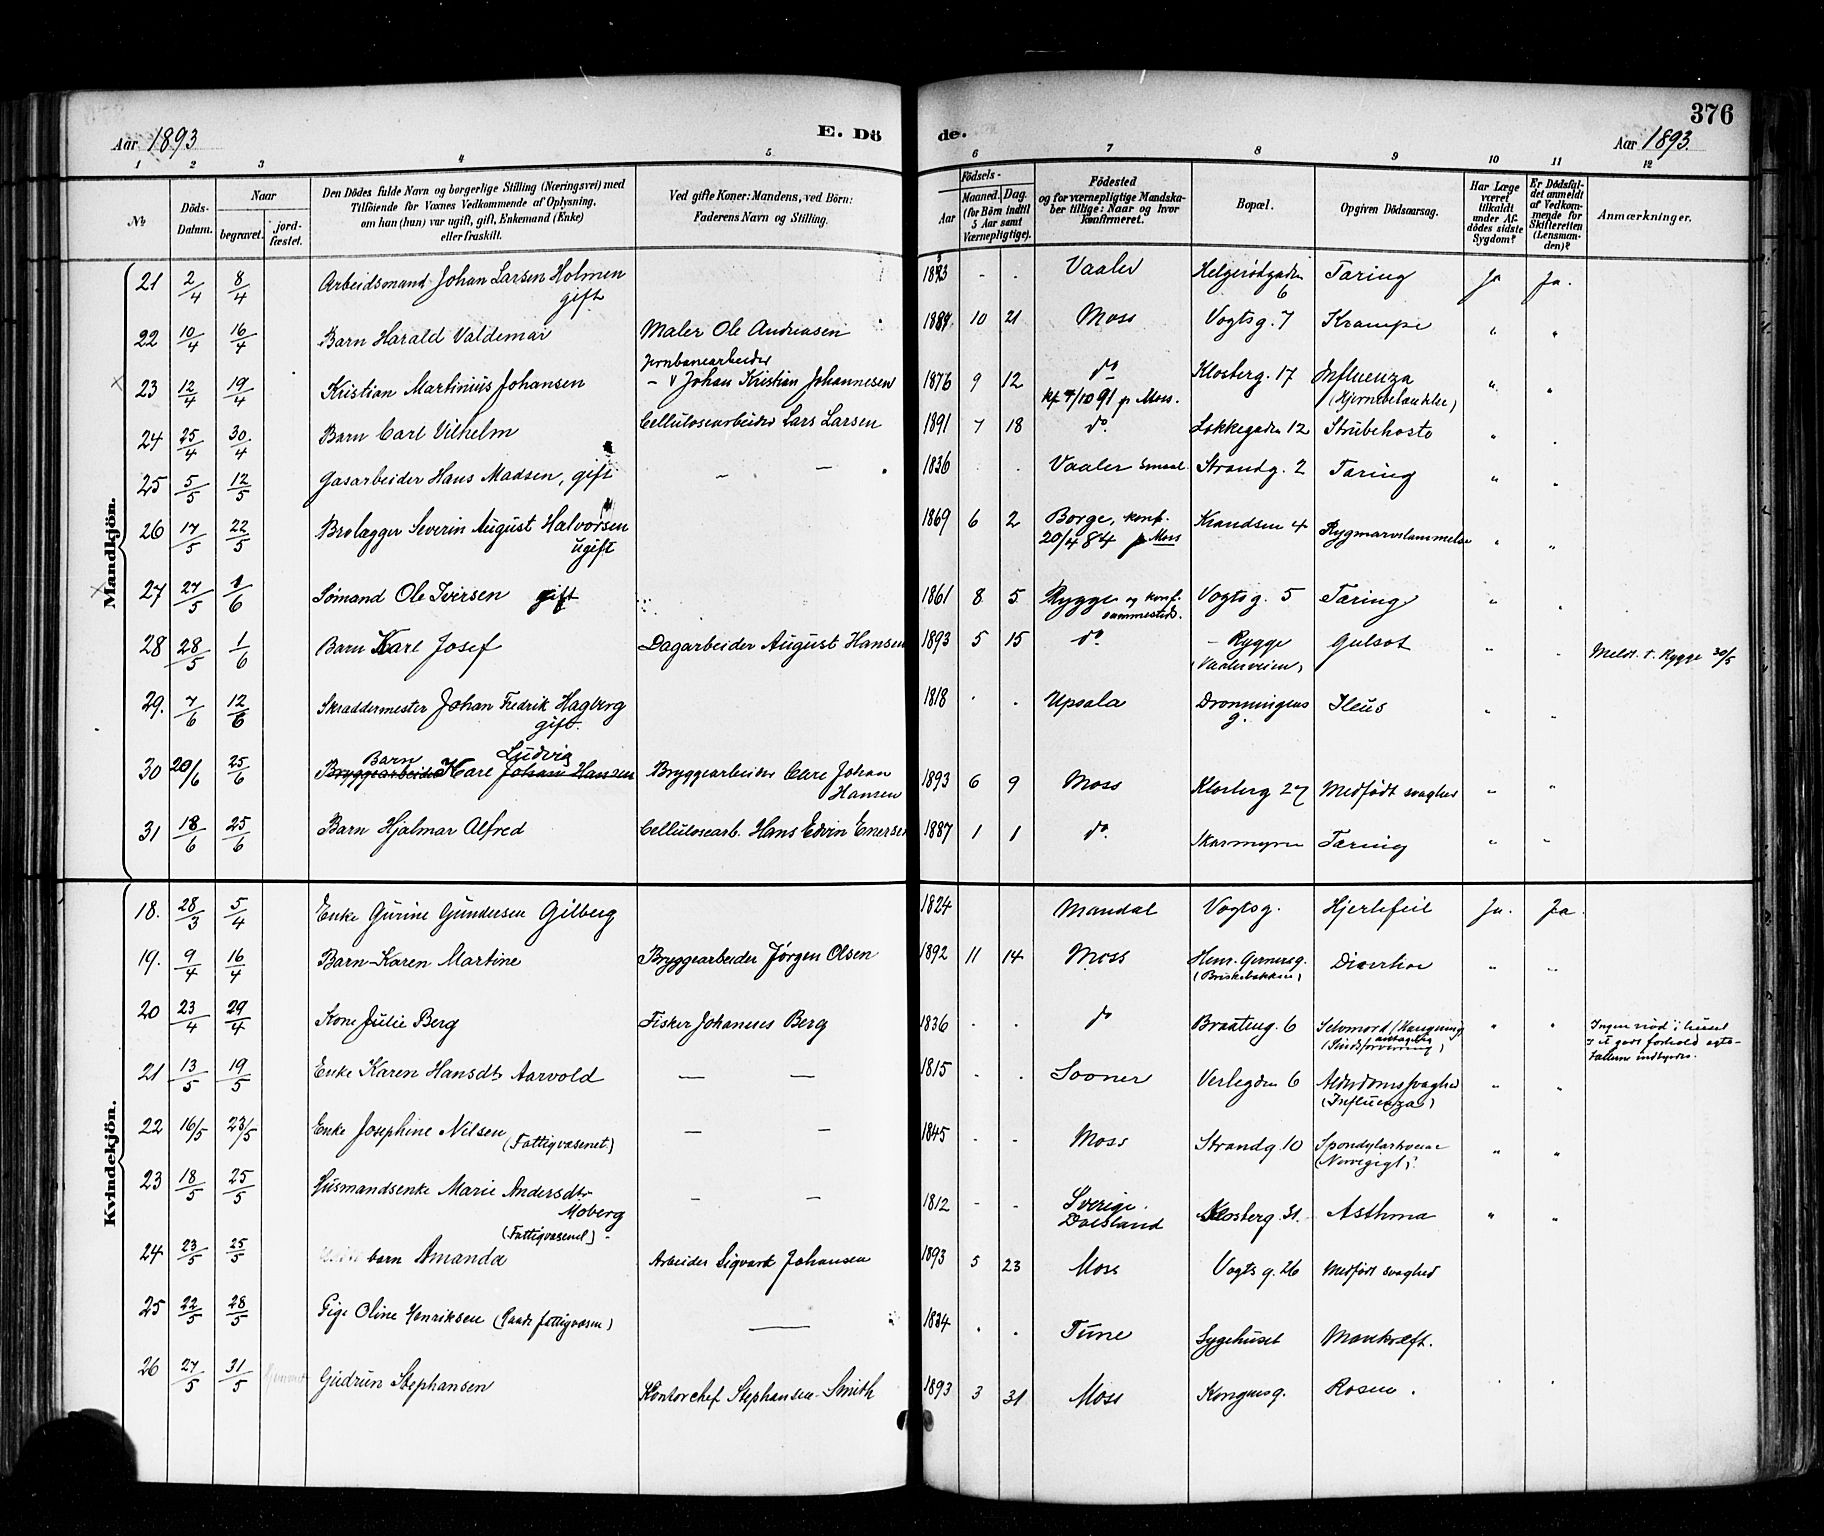 376
Aar 1893 E. Dö de. Aar 1893.
1 2 3 4 5 6 7 8 9 10 11 12
№ Döds-Datum. Naar begravet. jord-fæstet. Den Dödes fulde Navn og borgerlige Stilling (Næringsvei) med Tilföiende for Voxnes Vedkommende af Oplysning, om han (hun) var ugift, gift, Enkemand (Enke) eller fraskilt. Ved gifte Koner: Mandens, ved Börn: Faderens Navn og Stilling. Födsels- Aar Maaned. Dag. (for Börn indtil 5 Aar samt Værnepligtige). Födested og for værnepligtige Mandskaber tillige: Naar og hvor konfirmeret. Bopæl. Opgiven Dödsaarsag. Har Læge været tilkaldt under Afdödes sidste Sygdom? Er Dödsfaldet anmeldt af Vedkommende for Skifteretten (Lensmanden)? Anmærkninger.
Mandkjön.
21 2/4 8/4 Arbeidsmand Johan Larsen Holmen - . Vaaler Helgerødgaden Tæring Ja Ja.
gift 6
22 10/4 16/4 Barn Harald Valdemar Maler Ole Andreasen 10 21 Moss Vogtsg. 7 Krampe " "
Jernbanearbeider
23 12/4 19/4 Kristian Martinius Johansen Johan Kristian Johannesen 1876 9 12 do Klosterg. 17 Influenza " "
91 p Moss.
24 25/4 30/4 Barn Carl Vilhelm Cellulosearbeider Lars Larsen 1891 7 18 do. Løkkegaden 12 Strubehoste " .
25 5/5 12/5 Gasarbeider Hans Madsen, gift - - 1836 . Vaaler Smaal. Strandg. 2 Tæring " "
26 17/5 22/5 Brolægger Severin August Halvorsen 1869 6 2 Borge, konf. 4 Rygmarvslammelse " "
ugift 20/4 84 p Moss
27 27/5 1/6 Sømand Ole Iversen gift 1861 8 5 Rygge og konf. Vogtsg. 5 Tæring " .
sammesteds.
28 28/5 1/6 Barn Karl Josef Dagarbeider August Hansen 1893 5 15 do. - Rygge Gulsot " . Meldt t. Rygge 30/5
(Vaalerveien)
29. 7/6 12/6 Skræddermester Johan Fredrik Hagberg 1818 . . Upsala Dronningens Ileus " "
gift. g.
Barn Ludvig
30 20/6 25/6 Bryggearbeider Karl Johan Hansen Bryggearbeider Carl Johan 1893 6 9 Moss Klosterg 27 Medfødt svaghed " "
Hansen
31 18/6 25/6 Barn Hjalmar Alfred Cellulosearb. Hans Edvin Enersen 1887 1 1 do. Skarmyren Tæring " "
Kvindekjön.
18. 28/3 5/4 Enke Gurine Gundersen Gilberg 1824 Mandal Vogtsg. Hjertefeil Ja. Ja.
19. 9/4 16/4 Barn Karen Martine Bryggearbeider Jørgen Olsen 1892 11 14 Moss Henr. Gernersg. Diarrhoe " "
20 23/4 29/4 Kone Julie Berg Fisker Johannes Berg 1836 . . do Braateng. 6 Selvmord (Hængning " " Ingen nød i huset
antagelig
(Sindsforvirring)
21 13/5 19/5 Enke Karen Hansdtr Aarvold — — 1815 . . Sooner Verlegden 6 Alderdomssvaghed " "
(Influenza)
22 16/5 23/5 Enke Josephine Nilsen — — 1845 . . Moss Strandg. 10 " "
(Fattigvæsenet)
23 18/5 25/5 Husmandsenke Marie Andersdtr - - 1812 - - Sverige. Klosterg 31. Asthma " "
Moberg Dalsland
(Fattigvæsenet)
24 23/5 25/5 barn Amanda Arbeider Sigvart Johansen 1893 5 23 Moss Vogtsg. 26 Medfødt svaghed
25 22/5 28/5 Pige Oline Henriksen (Raade fattigvæsen) — . . Tune Sygehuset Mavekræft.
26 27/5 31/5 Gudrun Stephansen Kontorchef Stephansen-Smith 1893 3 31 Moss Kongensg. Rosen . . .